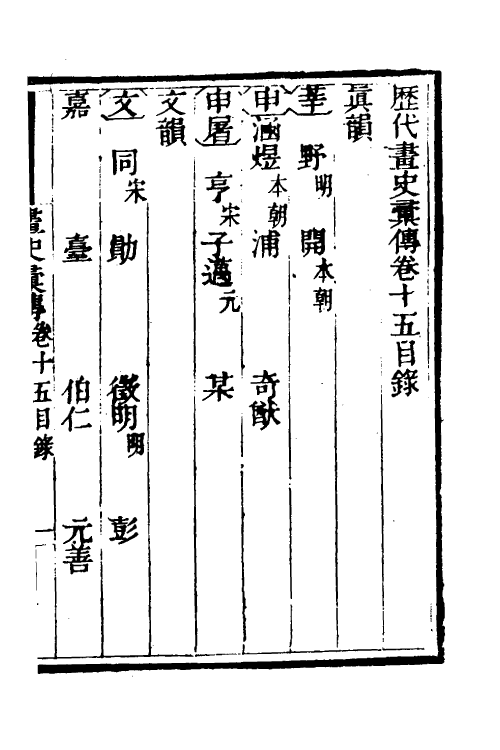 歷代畫史彙傳卷十五目錄
眞韻
莘 野明 開本朝
申 涵煜本朝 浦 奇猷
申屠 亨宋 子邁元 某
文韻
文 同宋 勛 徵明明 彭
嘉 臺 伯仁 元善
畫史彙傳卷十五目錄 一